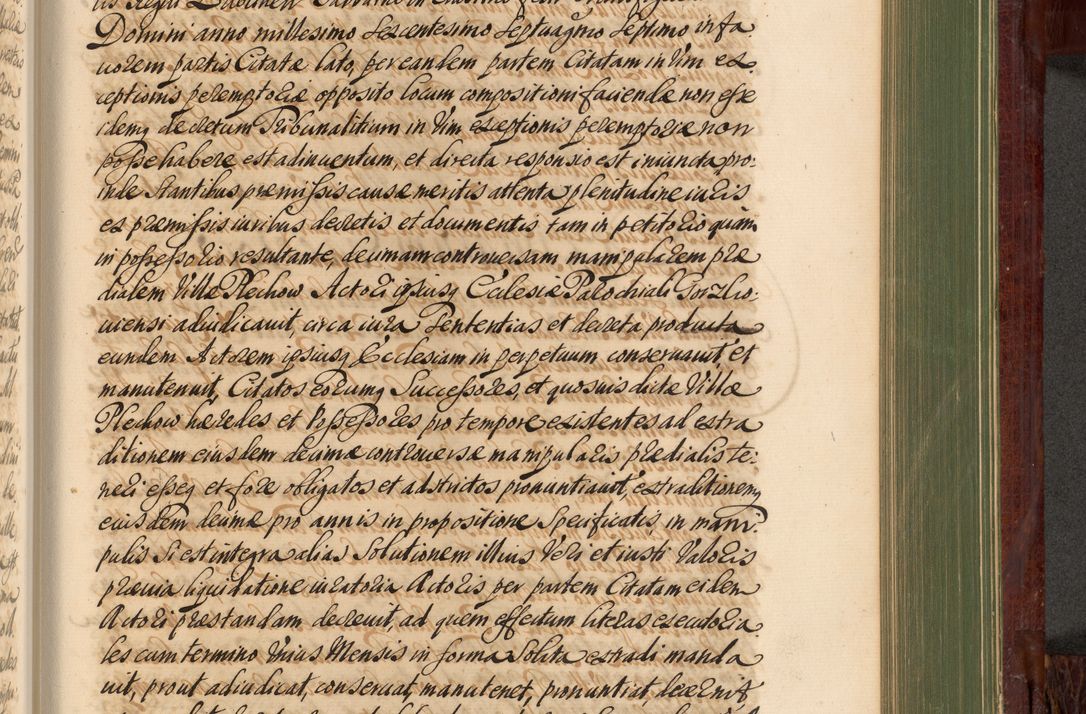 Domini anno millesimo sexcentesimo septuagmo septimo in fa
uorem partis Citatæ lato, per eandem partem Citatam in Vim ex
ceptionis peremptoriæ opposito locum compositioni faciendæ non esse
idemq decretum Tribunalitium in Vim exceptionis peremptoriæ non
posse habere est adinuentum, et directa responsio est iniuncta pro:
inde stantibus præmissis causæ meritis attenta plenitudine iuris
ex præmissis iuribus decretis et documentis tam in petitorio quam
in possessorio resultante, decimam controuersam manipularem præ
dialem Villæ Plechow Actori ipsiusq Ecclesiæ Parochiali Gorzko
uiensi adiudicauit, circa iura Sententias et decreta producta
eundem Actorem ipsiusq Ecclesiam in perpetuum conseruauit et
manutenuit, Citatos eorumq Successores, et quosuis dictæ Villæ
Plechow hæredes et Possessores pro tempore existentes ad extra
ditionem eiusdem decimæ controuersæ manipularis prædialis te:
neri esseq et fore obligatos et adstrictos pronuntiauit, extraditionemq
eiusdem decimæ pro annis in propositione specificatis, in mani:
pulis si est integra alias Solutionem illius Veri et iusti Valoris
præuia liquidatione iuratoria Actoris per partem Citatam eidem
Actori præstandam decreuit, ad quem effectum literas executoria
les cum termino Vnius Mensis in forma Solita extradi manda
uit, prout adiudicat, conseruat, manutenet, pronuntiat, decernit